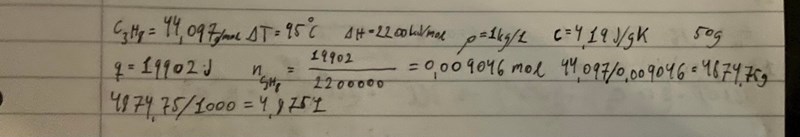 C₃H₈ = 44,097g/mol ΔT = 95°C ΔH=2200kJ/mol ρ=1kg/L C=4,19J/gK 50g
q = 19902J n C₃H₈ = 19902/2200000 = 0,009046 mol 44,097/0,009046 = 4874,75g
4874,75/1000 = 4,875L